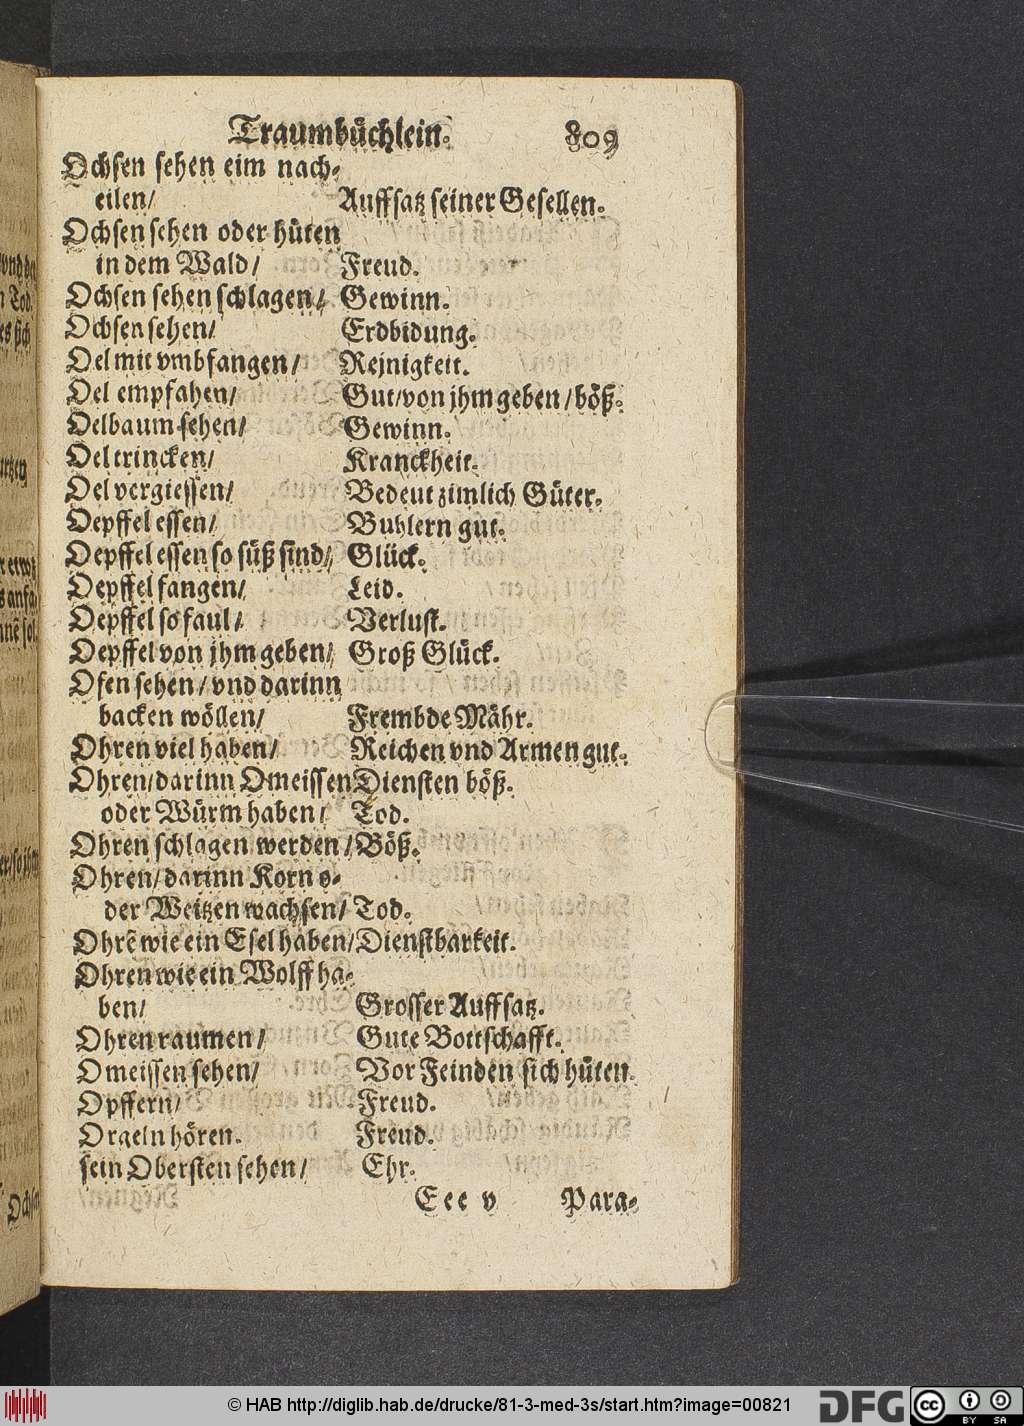 Traumbüchlein. 809
Ochsen sehen eim nach-
eilen/ Auffsatz seiner Gesellen.
Ochsen sehen oder hüten
in dem Wald/ Freud.
Ochsen sehen schlagen/ Gewinn.
Ochsen sehen/ Erdbidung.
Oel mit vmbfangen/ Reinigkeit.
Oel empfahen/ Gut/von jhm geben/böß.
Oelbaum sehen/ Gewinn.
Oel trincken/ Kranckheit.
Oel vergiessen/ Bedeut zimlich Güter.
Oepffel essen/ Buhlern gut.
Oepffel essen so süß sind/ Glück.
Oepffel fangen/ Leid.
Oepffel so faul/ Verlust.
Oepffel von jhm geben/ Groß Glück.
Ofen sehen/vnd darinn
backen wöllen/ Frembde Mähr.
Ohren viel haben/ Reichen vnd Armen gut.
Ohren/darinn Omeissen Diensten böß.
oder Würm haben/ Tod.
Ohren schlagen werden/ Böß.
Ohren/darinn Korn o-
der Weitzen wachsen/ Tod.
Ohrē wie ein Esel haben/ Dienstbarkeit.
Ohren wie ein Wolff ha-
ben/ Grosser Auffsatz.
Ohren raumen/ Gute Bottschafft.
Omeissen sehen/ Vor Feinden sich hüten.
Opffern/ Freud.
Orgeln hören. Freud.
sein Obersten sehen/ Ehr.
Eee v Para-
© HAB http://diglib.hab.de/drucke/81-3-med-3s/start.htm?image=00821
DFG
cc BY SA